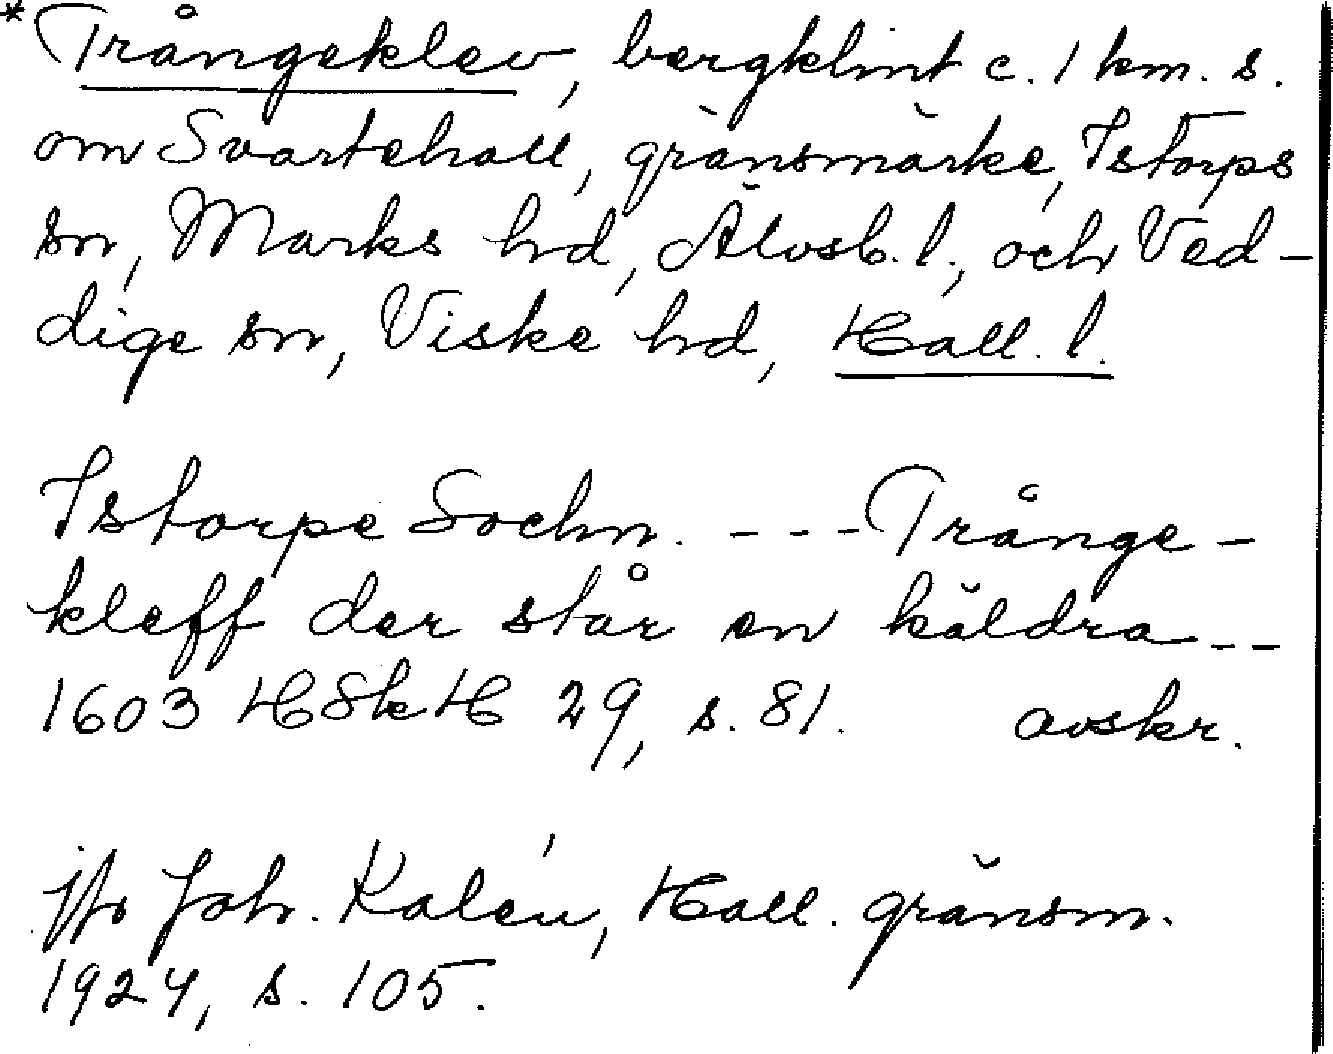 * Trångeklev, bergklint c. 1 km. s.
om Svartehall, gränsmärke, Istorps
sn, Marks hd, Älvsb. l., och Ved-
dige sn, Viske hd, Hall. l.
Istorpe Sochn. - - - Trånge-
kleff der står en käldra - -
1603 HSkH 29, s. 81. avskr.
jfr Joh. Kalén, Hall. gränsm.
1924, s. 105.